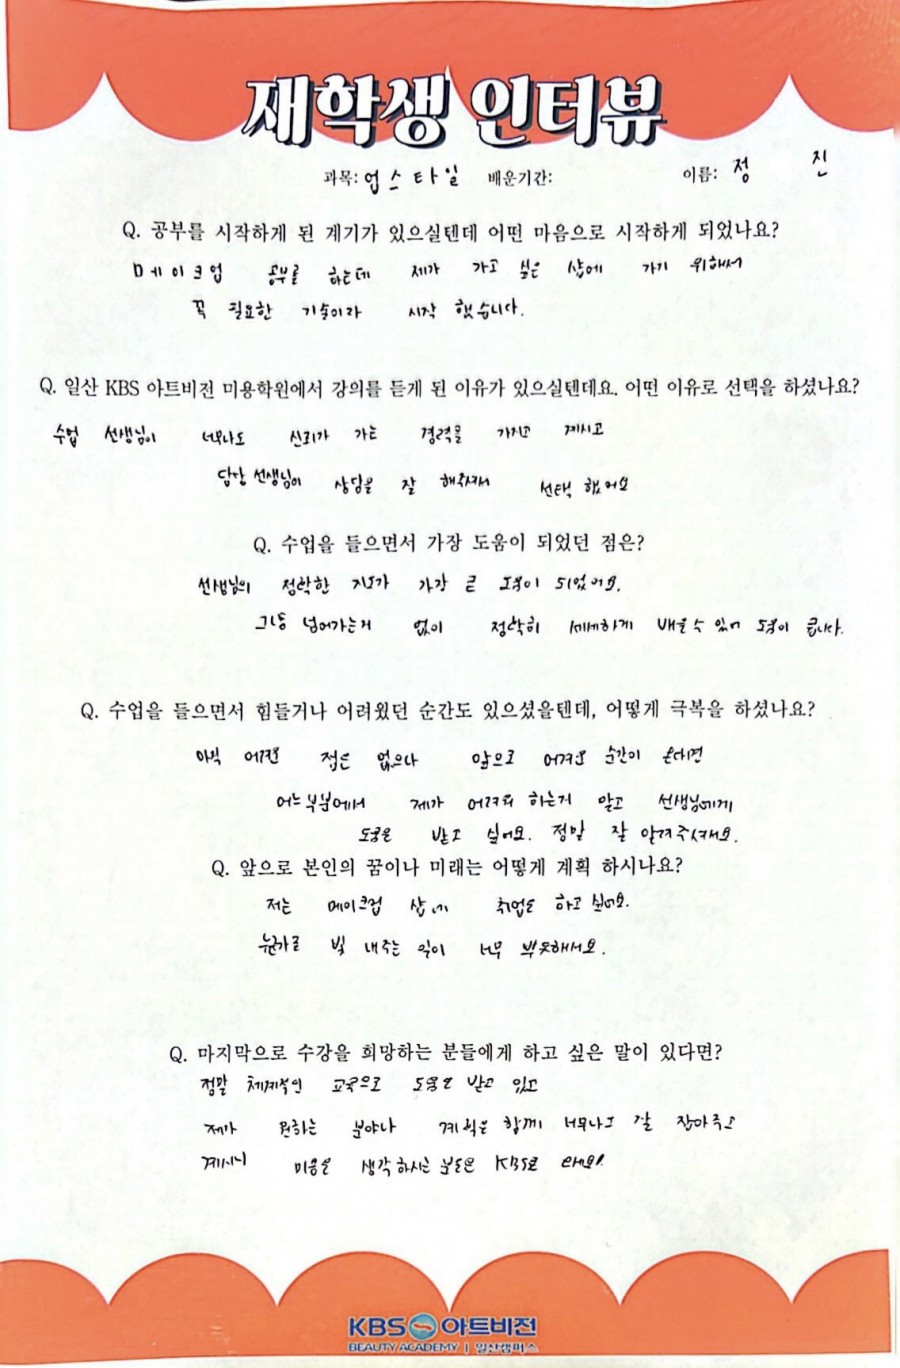 재학생 인터뷰
과목: 업스타일 배운기간: 이름: 정 진
Q. 공부를 시작하게 된 계기가 있으실텐데 어떤 마음으로 시작하게 되었나요?
메이크업 공부를 하는데 제가 가고 싶은 샵에 가기 위해서
꼭 필요한 기술이라 시작 했습니다.
Q. 일산 KBS 아트비전 미용학원에서 강의를 듣게 된 이유가 있으실텐데요. 어떤 이유로 선택을 하셨나요?
수업 선생님이 너무나도 신뢰가 가는 경력을 가지고 계시고
담당 선생님이 상담을 잘 해주셔서 선택 했어요
Q. 수업을 들으면서 가장 도움이 되었던 점은?
선생님의 정확한 지도가 가장 큰 도움이 되었어요.
그냥 넘어가는거 없이 정확히 세세하게 배울 수 있어 도움이 큽니다.
Q. 수업을 들으면서 힘들거나 어려웠던 순간도 있으셨을텐데, 어떻게 극복을 하셨나요?
아직 어려운 점은 없으나 앞으로 어려운 순간이 온다면
어느부분에서 제가 어려워 하는거 말고 선생님에게
도움을 받고 싶어요. 정말 잘 알려주셔요.
Q. 앞으로 본인의 꿈이나 미래는 어떻게 계획 하시나요?
저는 메이크업 샵에 취업을 하고 싶어요.
누군가를 빛 내주는 일이 너무 뿌듯해서요.
Q. 마지막으로 수강을 희망하는 분들에게 하고 싶은 말이 있다면?
정말 체계적인 교육으로 도움을 받고 있고
제가 원하는 분야나 계획을 함께 너무나도 잘 잡아주고
계시니 미용을 생각하시는 분들은 KBS로 오세요!
KBS 아트비전
BEAUTY ACADEMY | 일산캠퍼스